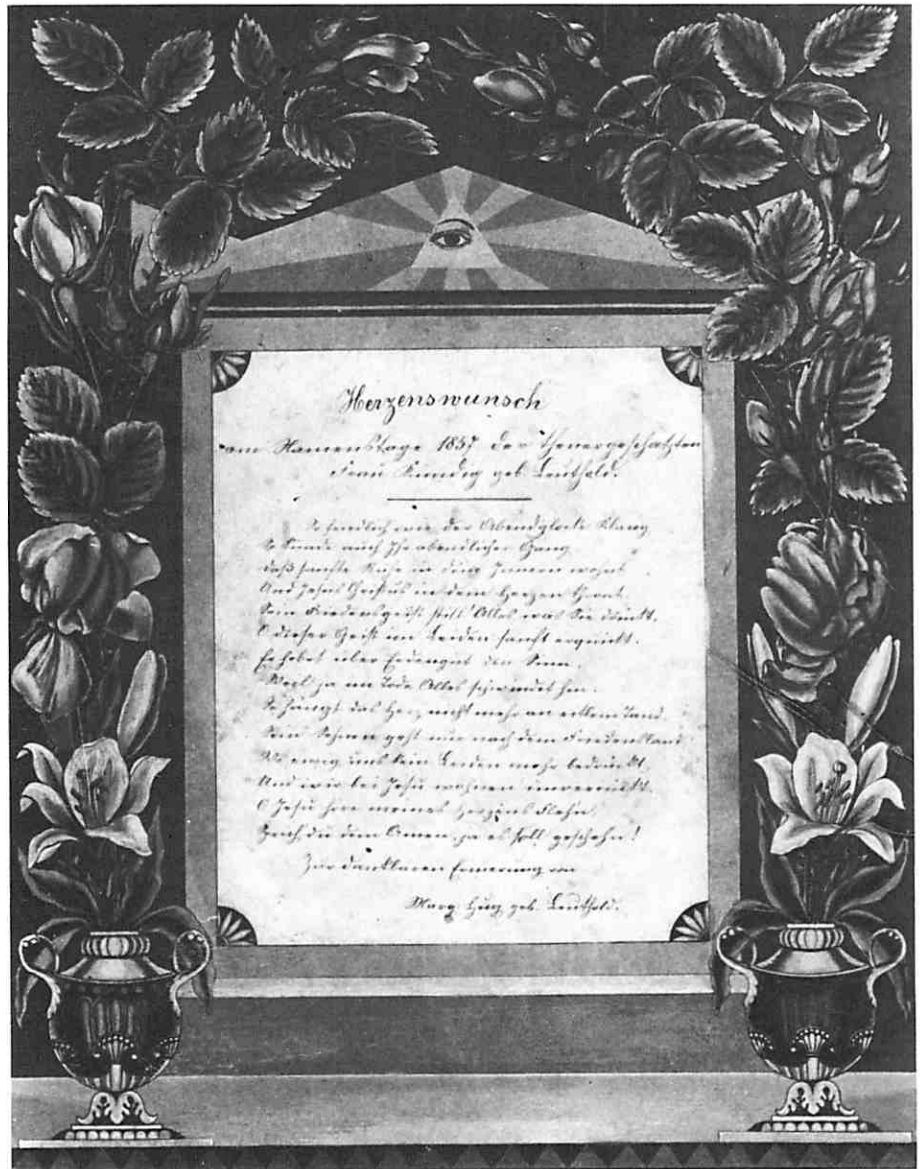 Herzenswunsch
am Namenstage 1857 der theuergeschätzten
Frau Kündig geb. Leuthold.
So friedlich wie der Abendglocke Klang
So Ihr abendlicher Gang
Daß sanfte Ruhe in Innern wohnt
Und Jesus Christus in dem Herzen thront.
Sein Friedensgeist still' Alles was Sie drückt.
O dieser Geist im Leiden sanft erquickt.
Er hebet über Erdengut den Sinn.
Weil ja im Tode Alles schwindet hin.
So hängt das Herz nicht mehr an eitlem Tand.
Sein Sehnen geht nur nach dem Friedensland
Wo ewig uns kein Leiden mehr bedrückt.
Und wir bei Jesu wohnen unverrückt.
O Jesu höre meines Herzens Flehn.
Sprich du dein Amen, ja es soll geschehn!
Zur dankbaren Erinnerung von
Marg. Hug geb. Leuthold.